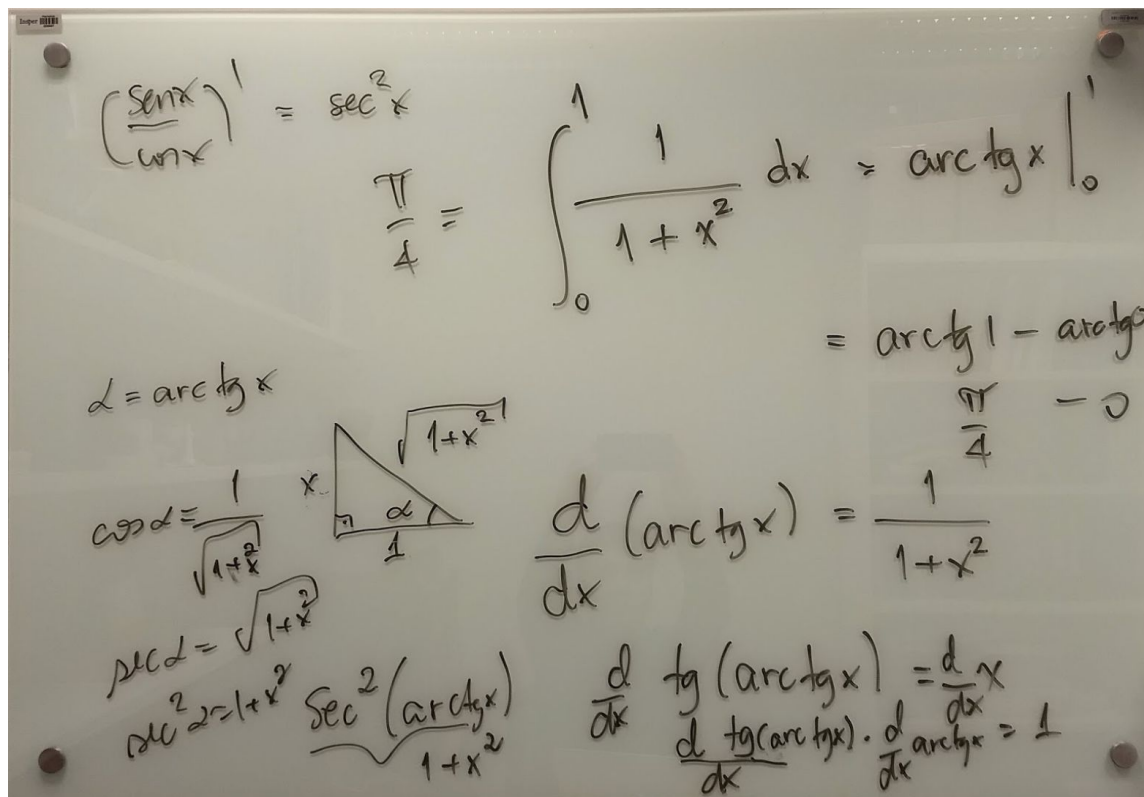 Insper
(senx/cosx)' = sec²x
π/4 = ∫₀¹ 1/(1+x²) dx = arctgx |₀¹
= arctg1 - arctg0
π/4 - 0
α = arctgx
cosα = 1/√(1+x²)
x √(1+x²) α 1
secα = √(1+x²)
sec²α = 1+x²
sec²(arctgx)
1+x²
d/dx (arctgx) = 1/(1+x²)
d/dx tg(arctgx) = d/dx x
d tg(arctgx)/dx · d/dx arctgx = 1